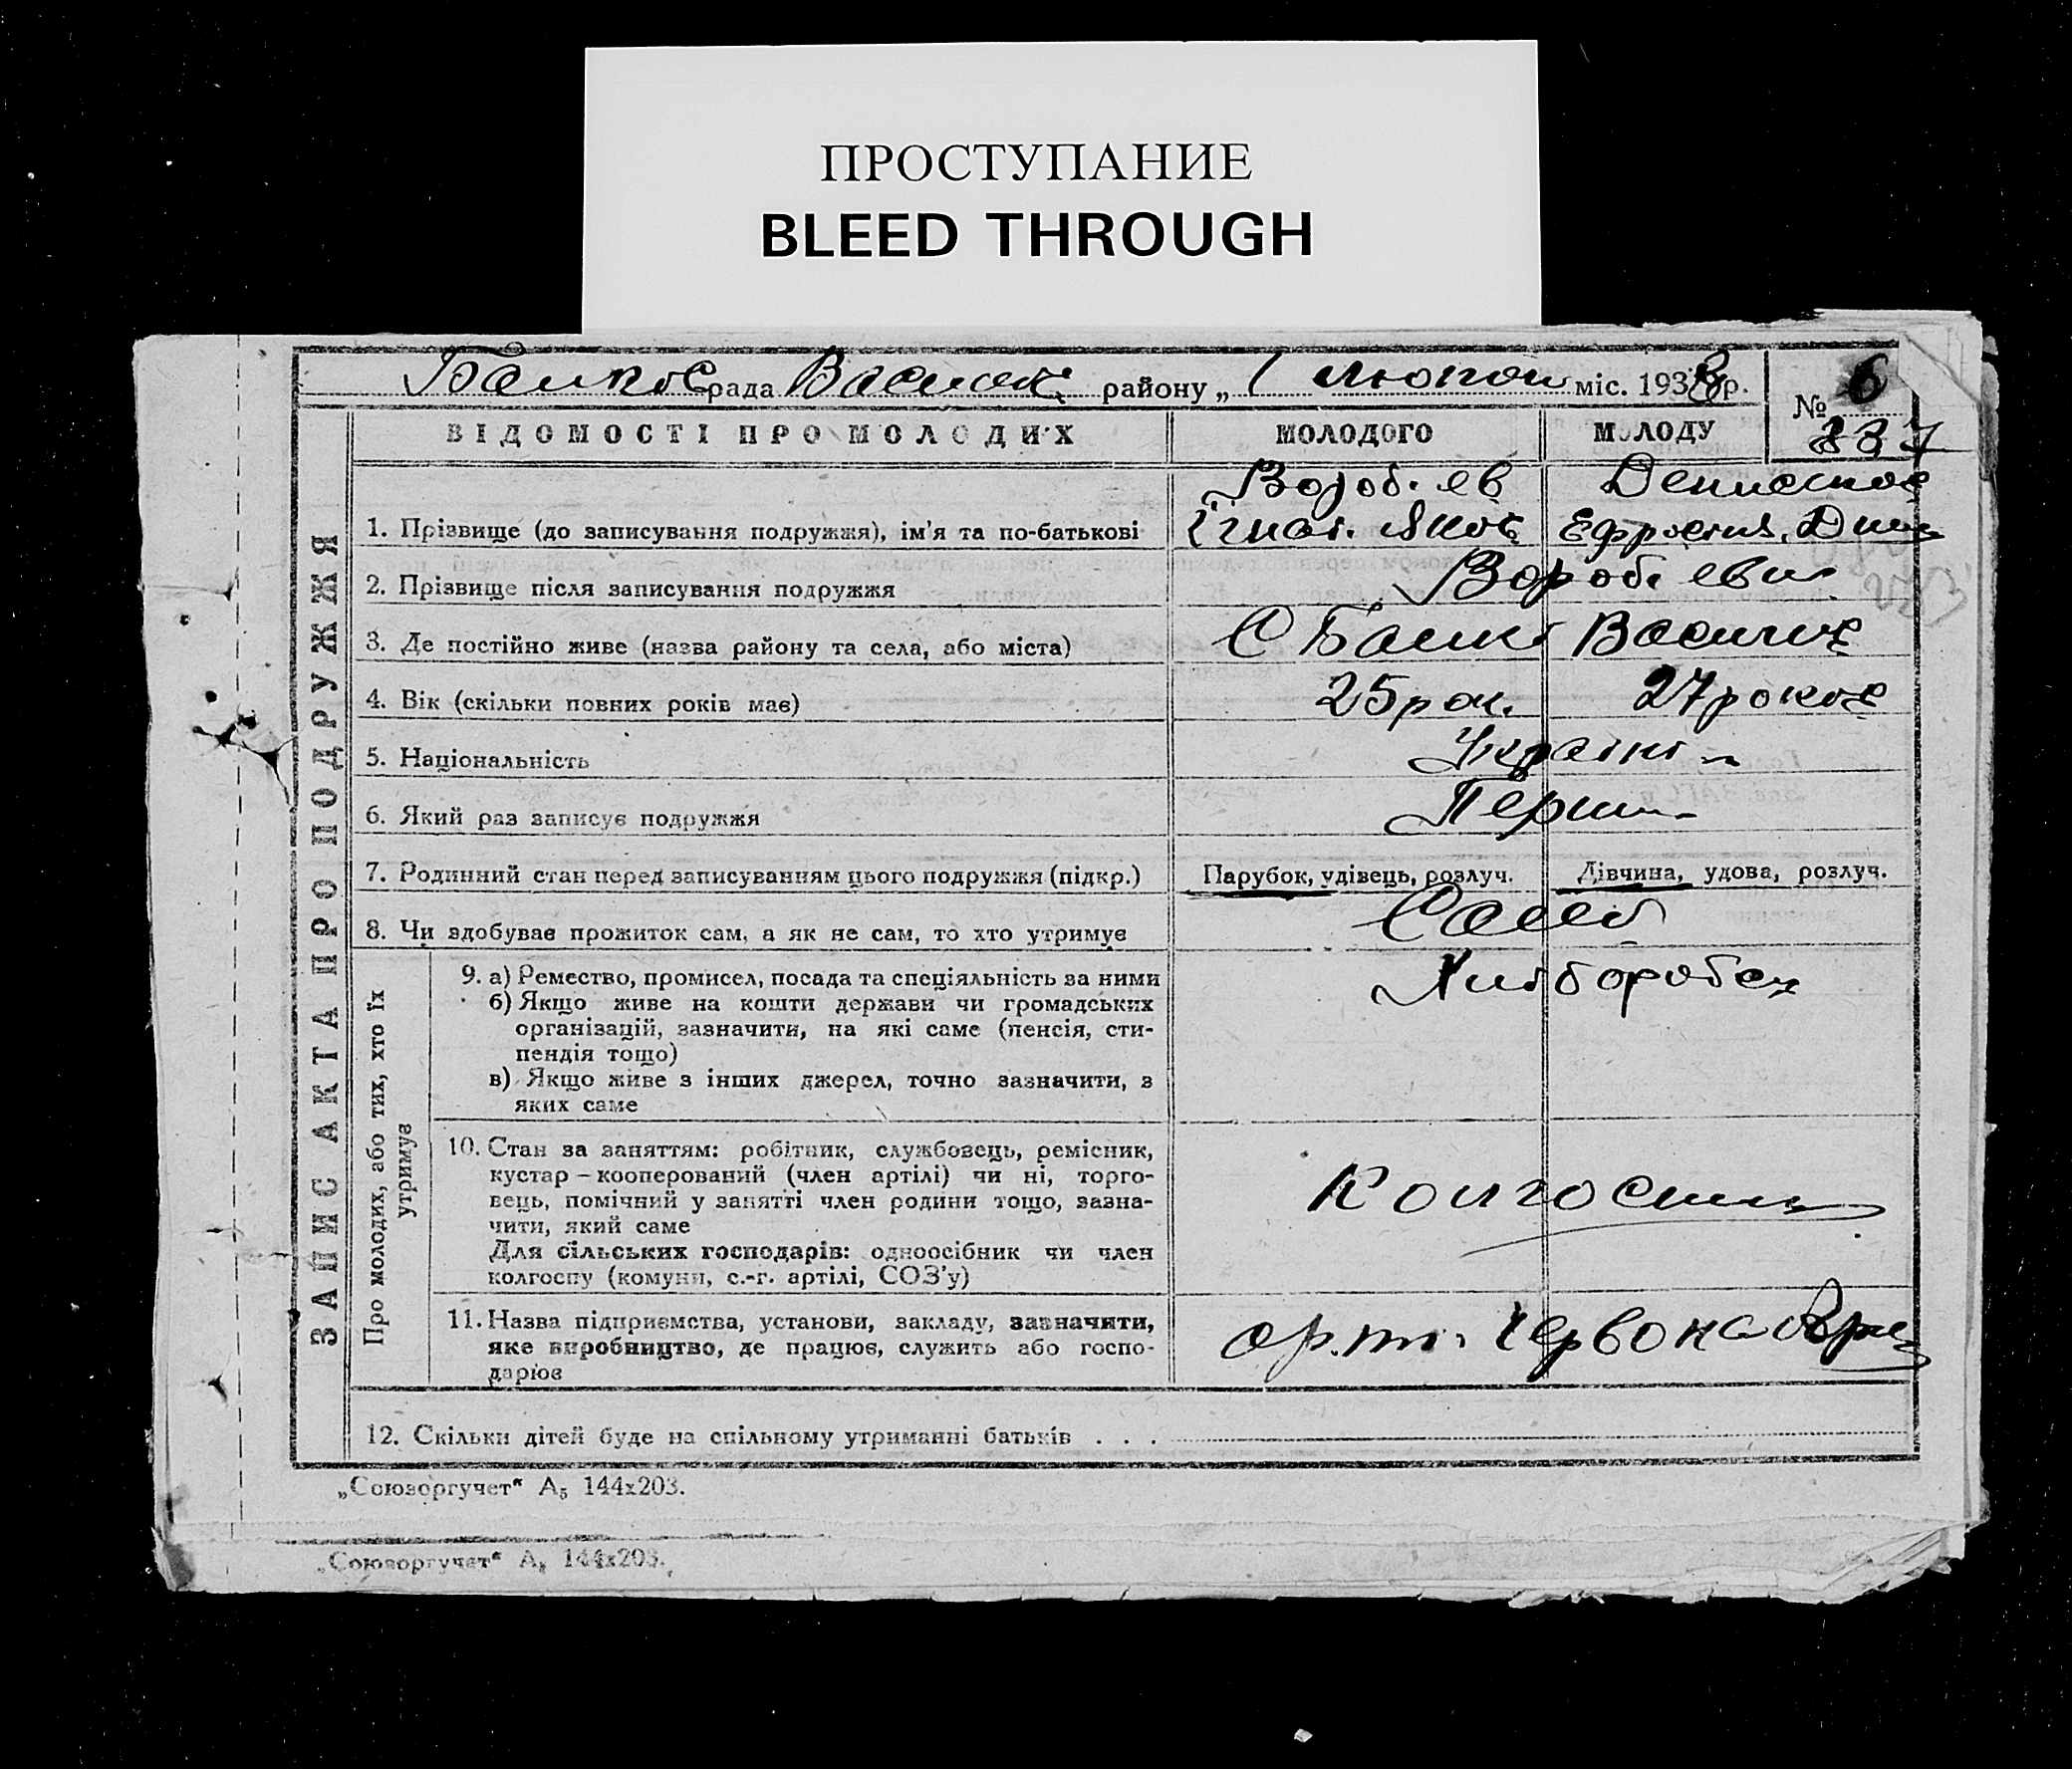 ПРОСТУПАНИЕ
BLEED THROUGH
рада району „ 1 міс. 1933 р.
№ 6
337
ВІДОМОСТІ ПРО МОЛОДИХ МОЛОДОГО МОЛОДУ
ЗАПИС АКТА ПРО ПОДРУЖЖЯ
Вороб. ев
1. Прізвище (до записування подружжя), ім'я та по-батькові Ігнат. Яков
2. Прізвище після записування подружжя Вороб. еви
3. Де постійно живе (назва району та села, або міста) С
4. Вік (скільки повних років має) 25 рок. 27 років
5. Національність Україн
6. Який раз записує подружжя Перш
7. Родинний стан перед записуванням цього подружжя (підкр.) Парубок, удівець, розлуч. Дівчина, удова, розлуч.
8. Чи здобуває прожиток сам, а як не сам, то хто утримує Самі
Про молодих, або тих, хто їх
утримує
9. а) Ремество, промисел, посада та спеціяльність за ними Хліборобст
б) Якщо живе на кошти держави чи громадських
організацій, зазначити, на які саме (пенсія, сти-
пендія тощо)
в) Якщо живе з інших джерел, точно зазначити, з
яких саме
10. Стан за заняттям: робітник, службовець, ремісник,
кустар – кооперований (член артілі) чи ні, торго-
вець, помічний у занятті член родини тощо, зазна-
чити, який саме Колгоспн
Для сільських господарів: одноосібник чи член
колгоспу (комуни, с.-г. артілі, СОЗ'у)
11. Назва підприємства, установи, закладу, зазначити,
яке виробництво, де працює, служить або госпо- арт. Червона
дарює
12. Скільки дітей буде на спільному утриманні батьків . . .
„Союзоргучет“ А5 144х203.
„Союзоргучет“ А5 144х203.